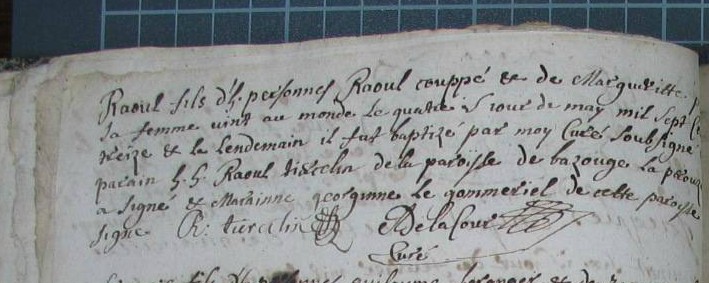 Raoul fils d'h. personnes Raoul couppé & de Margueritte
sa femme vint au monde le quatre jour de may mil sept
treize & le lendemain il fut baptizé par moy Curé soubsigné
parain h. h. Raoul tircelin de la paroisse de bazouge la
a signé & Marainne georginne le gommeriel de cette paroisse
signe R: turcelin ADelaCour
Curé